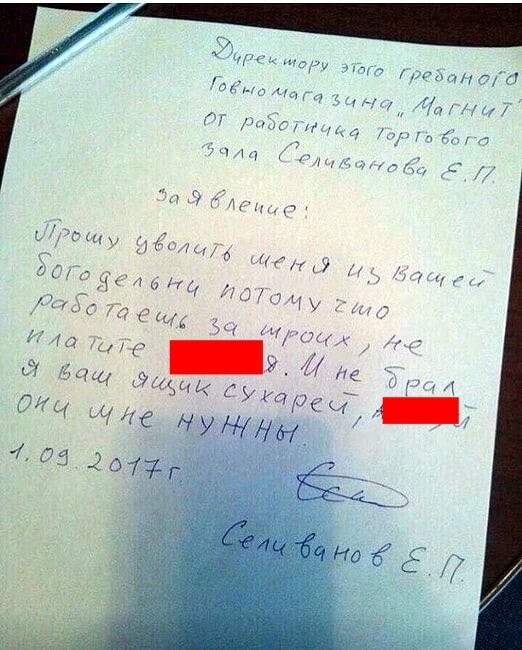 Директору этого гребаного
Говномагазина „Магнит"
от работника торгового
зала Селиванова Е.П.
заявление:
Прошу уволить меня из вашей
богодельни потому что
работаешь за троих, не
платите я. И не брал
я ваш ящик сухарей, й
они мне нужны.
1.09.2017г.
Селиванов Е.П.